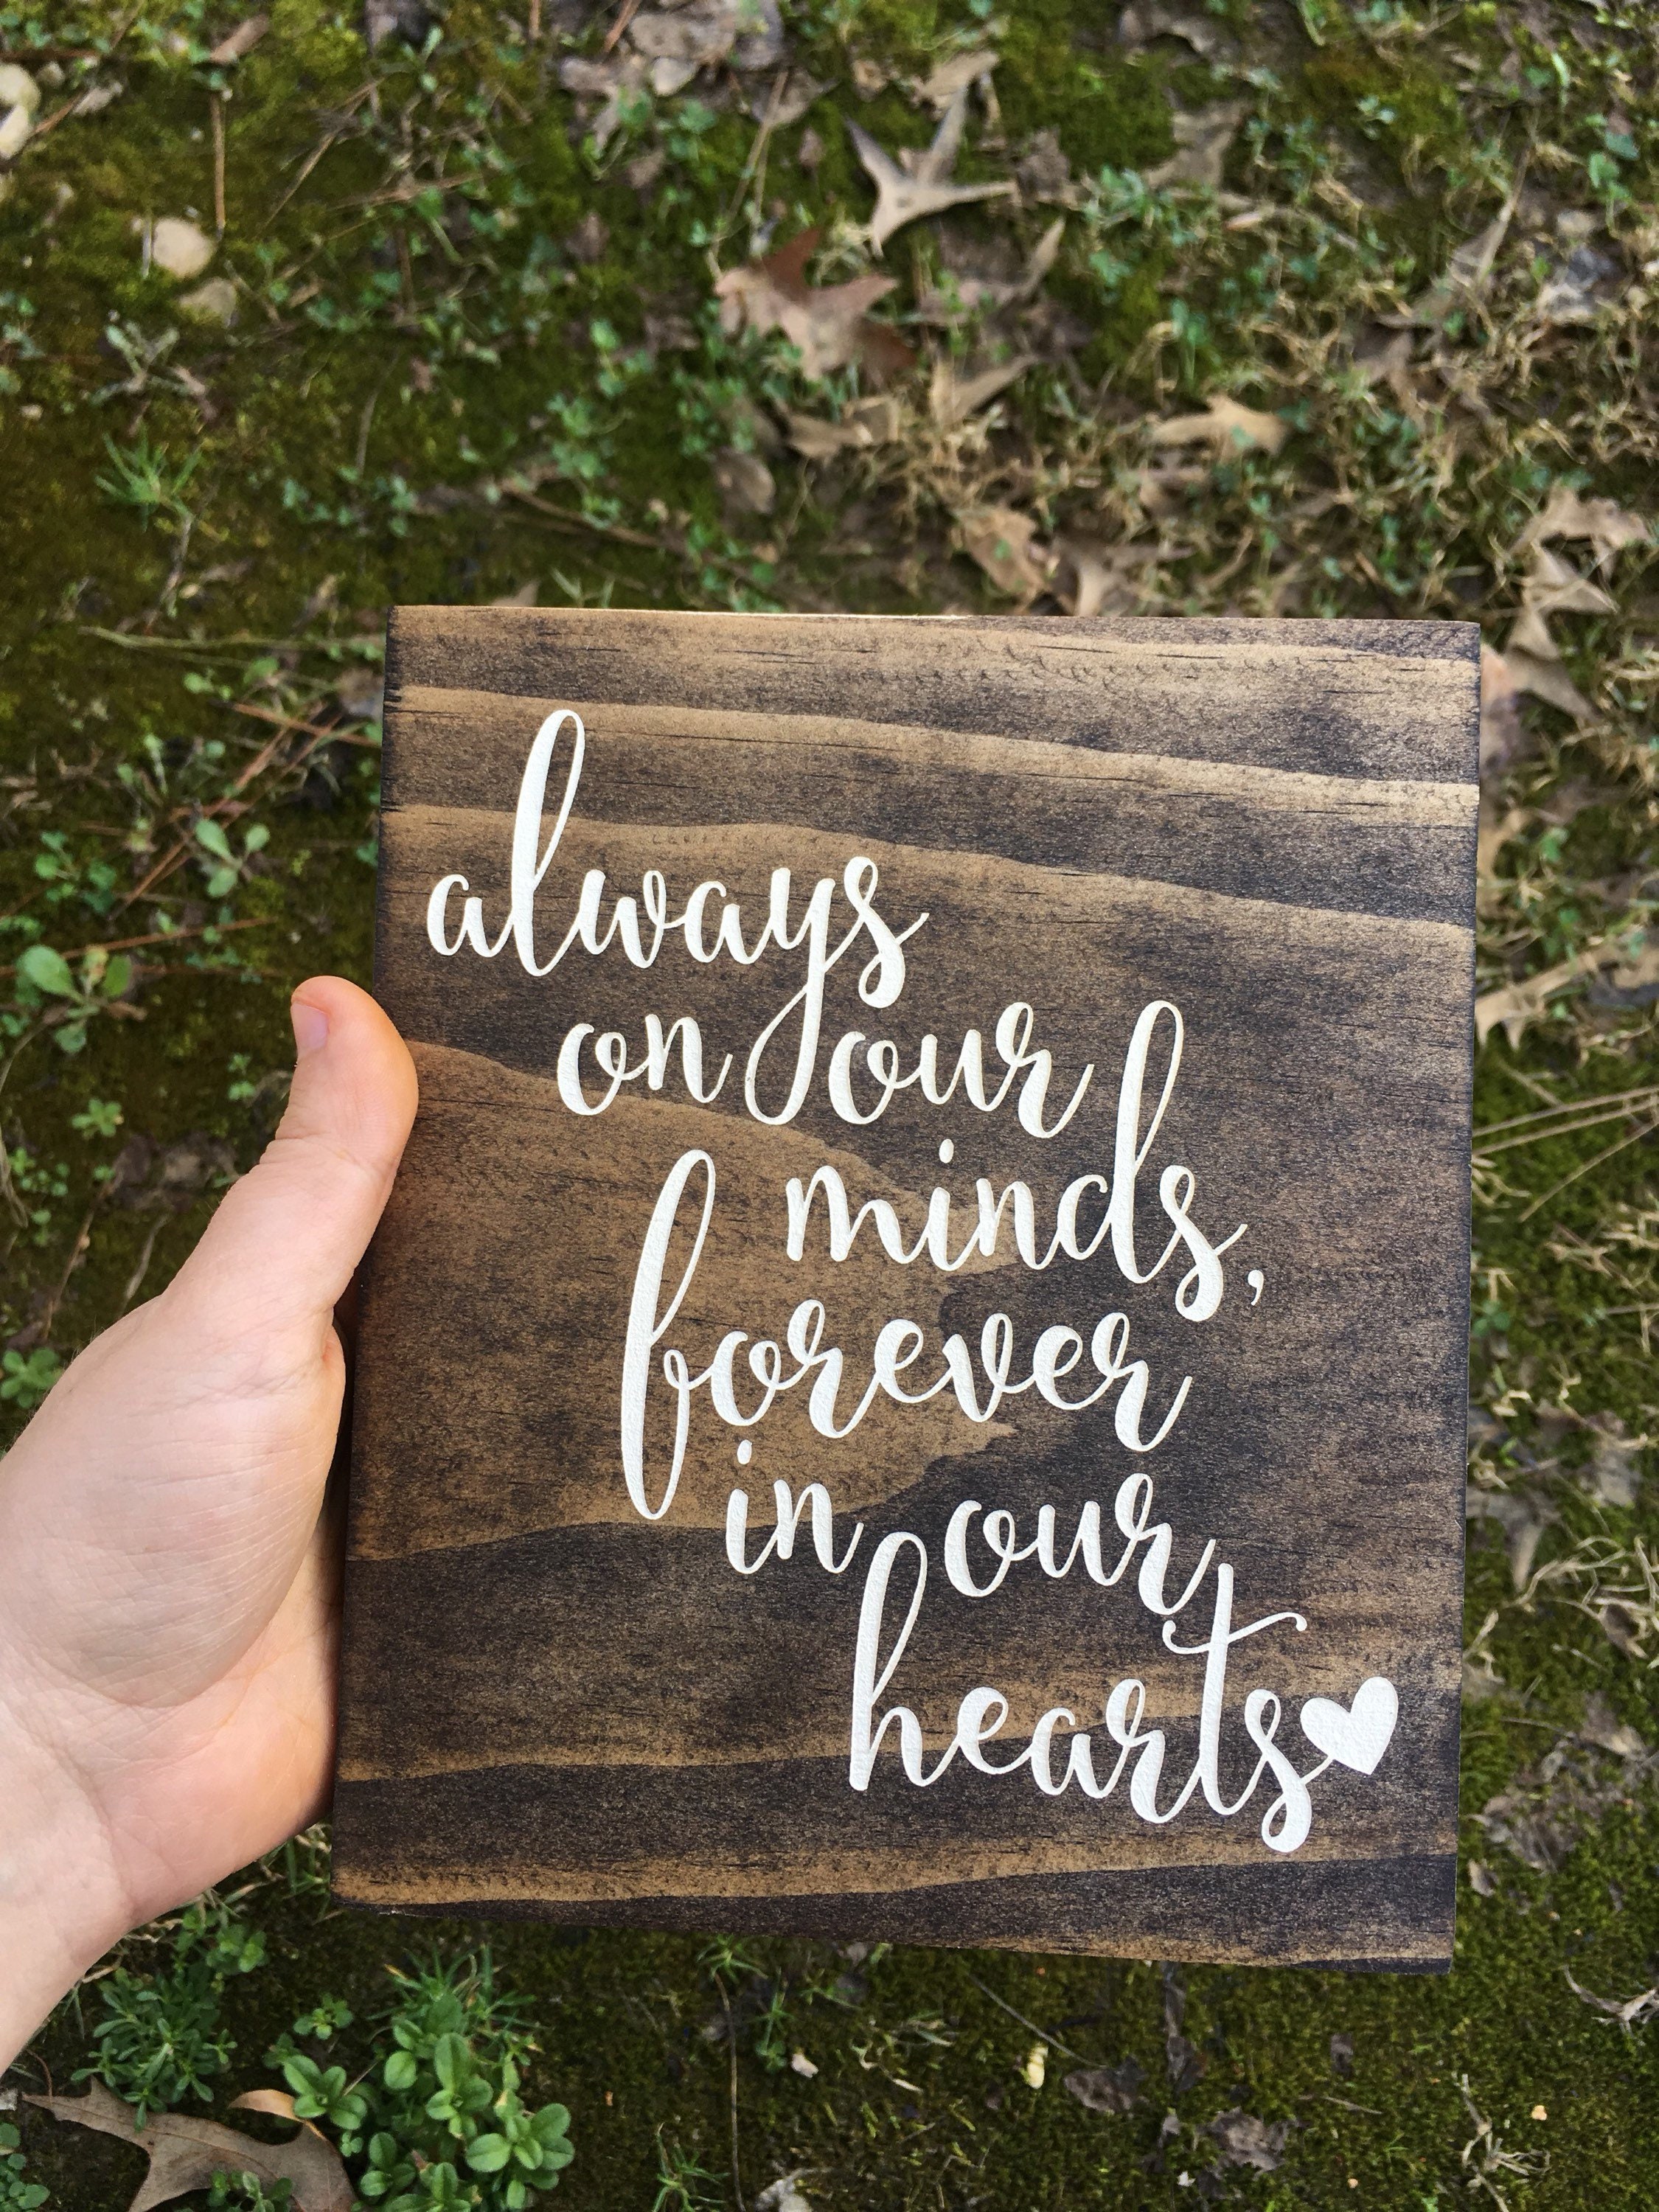 always
on our
minds,
forever
in our
hearts